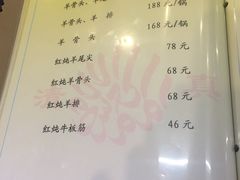 羊骨头、羊尾 188元/锅
羊骨头、羊排 168元/锅
羊骨头 78元
红炖羊尾尖 68元
红炖羊骨头 68元
红炖羊排 68元
红炖牛板筋 46元
清 真